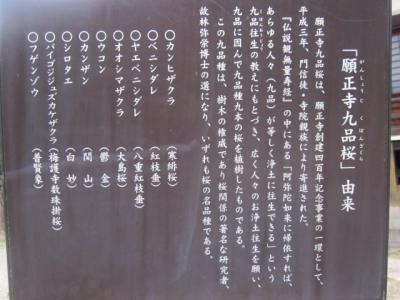 がんしょうじ くぼんざくら
「願正寺九品桜」由来
願正寺九品桜は、願正寺創建四百年記念事業の一環として、
平成三年、門信徒・寺院親族により寄進された。
『仏説観無量寿経』の中にある「阿弥陀如来に帰依すれば、
あらゆる人々（九品）が等しく浄土に往生できる」という
九品往生の教えにもとづき、広く人々のお浄土往生を願い、
九品に因んで九品種九本の桜を植樹したものである。
この九品種は、樹木の権威であり桜関係の著名な研究者、
故林弥栄博士の選になり、いずれも桜の名品種である。
○カンヒザクラ（寒緋桜）
○ベニシダレ（紅枝垂）
○ヤエベニシダレ（八重紅枝垂）
○オオシマザクラ（大島桜）
○ウコン（鬱金）
○カンザン（関山）
○シロタエ（白妙）
○バイゴジジュズカケザクラ（梅護寺数珠掛桜）
○フゲンゾウ（普賢象）